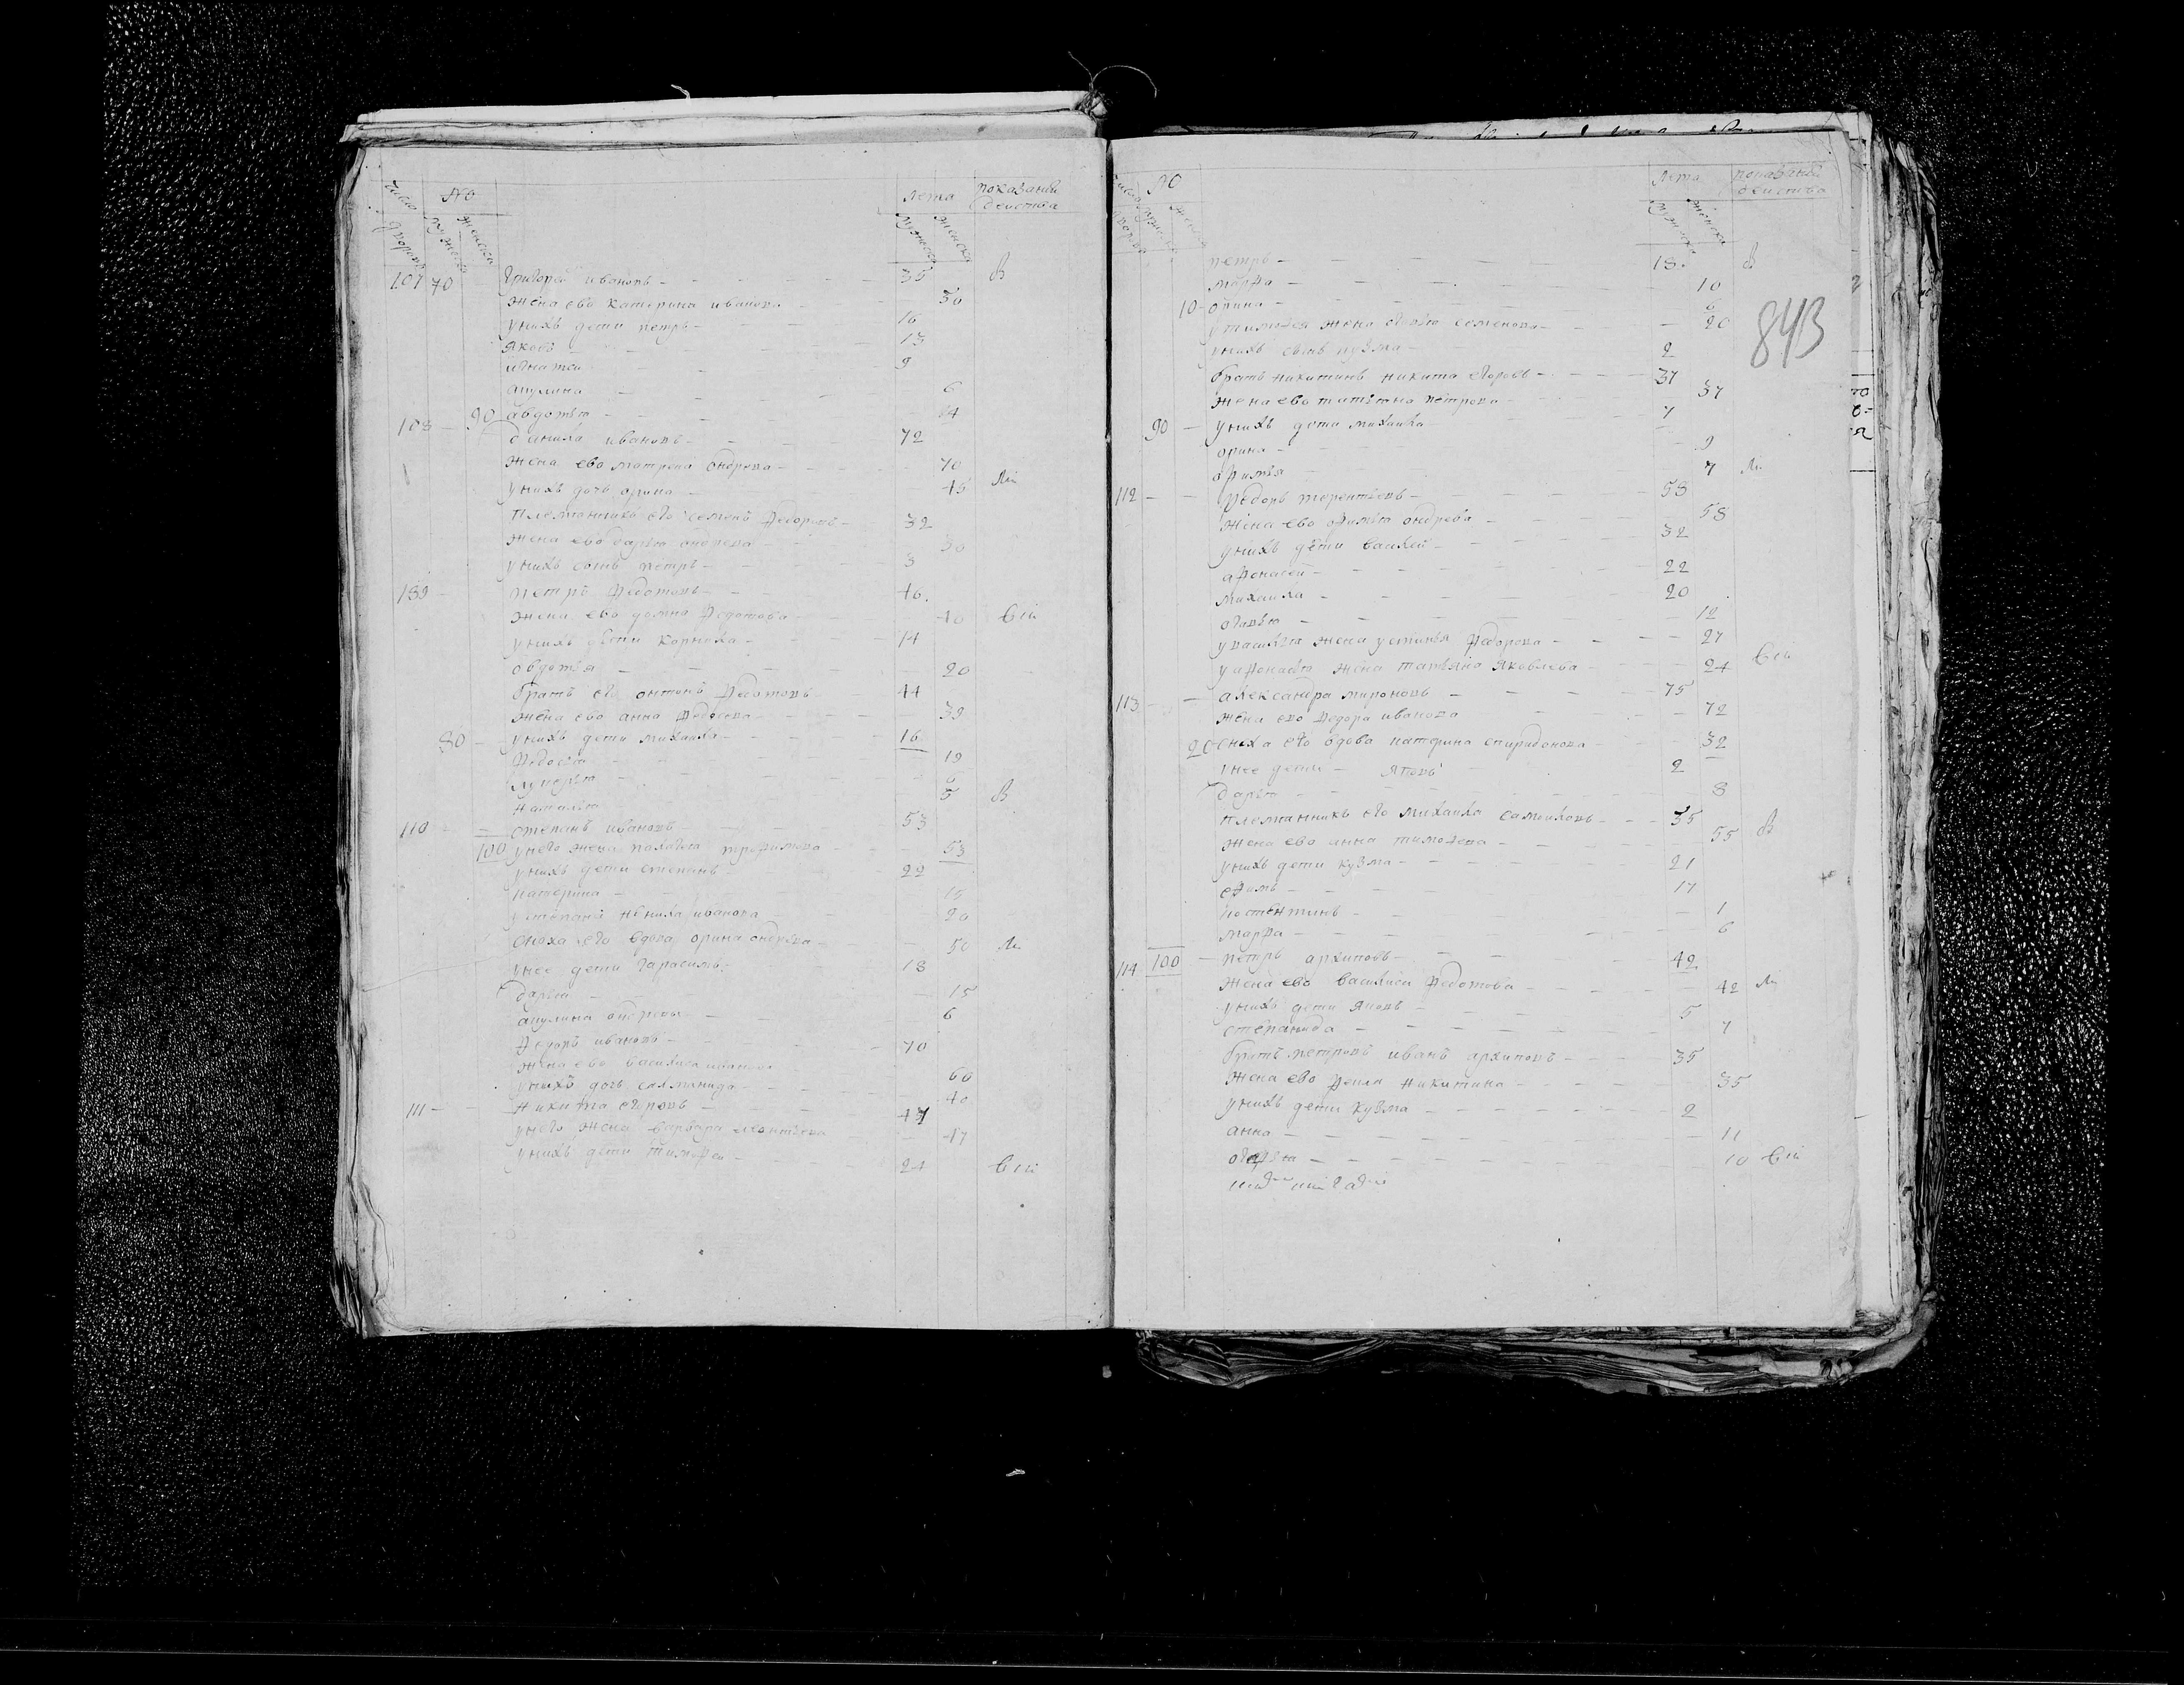 число дворовъ № мужеска женска лета мужеска женска показаніи действа
107 70 Григореи ивановъ 35 в
жена ево катерина иванова 30
унихъ дети петръ 16
яковъ 13
игнатеи 9
акулина 6
90 авдотья 14
108 данила ивановъ 72
жена ево матрена ондреева 70
унихъ дочь орина 45 ли
племянникъ его семенъ Федоровъ 32
жена ево дарья ондреева 30
унихъ сынъ петръ 3
109 петръ Федотовъ 46
жена ево домна Федотова 40 сеи
унихъ дети корнила 14
овдотья 20
братъ его онтонъ Федотовъ 44
жена ево анна Федосеева 39
80 унихъ дети михаила 16
Федосья 19
лукерья
наталья 5 в
110 степанъ ивановъ 53
100 унего жена палагея трофимова 53
унихъ дети степанъ 22
катерина 15
устепана жениха иванова 20
сноха его вдова орина ондреева 50 ли
унее дети гарасимъ 18
дарья 15
акулина 6
Федоръ ивановъ 70
жена ево василиса иванова 60
унихъ дочь саламанида 40
111 никита егоровъ 47
унего жена варвара леонтьева 47
унихъ дети тимофеи 24 сеи
№ лета мужеска женска показаніи действа
петръ 18 в
марфа 10
10 орина 6
843
утимофея жена софья семенова 20
унихъ сынъ кузма 2
братъ никитинъ никита егоровъ 37
жена ево татьяна петрова 37
90 унихъ дети михаила 7
орина 9
афимья 7 ли
112 Федоръ терентьевъ 58
жена ево офимья ондреева 58
унихъ дети василеи 32
афонасеи 22
михаила 20
огафья 12
увасилья жена устинья Федорова 27
уафонасья жена татьяна яковлева 24 сеи
113 александра мироновъ 75
жена ево Федора иванова 72
20 сноха его вдова катерина спиридонова 32
унее дети яковъ 2
дарья 8
племянникъ его михаила самоиловъ 55
жена ево анна тимофеева 55 в
унихъ дети кузма 21
ефимъ 17
костентинъ 1
марфа 6
114 100 петръ архиповъ 42
жена ево василиса Федотова 42 ли
унихъ дети яковъ 5
степанида 7
братъ петровъ иванъ архиповъ 35
жена ево Фекла никитина 35
унихъ дети кузма 2
анна 11
огафья 10 сеи